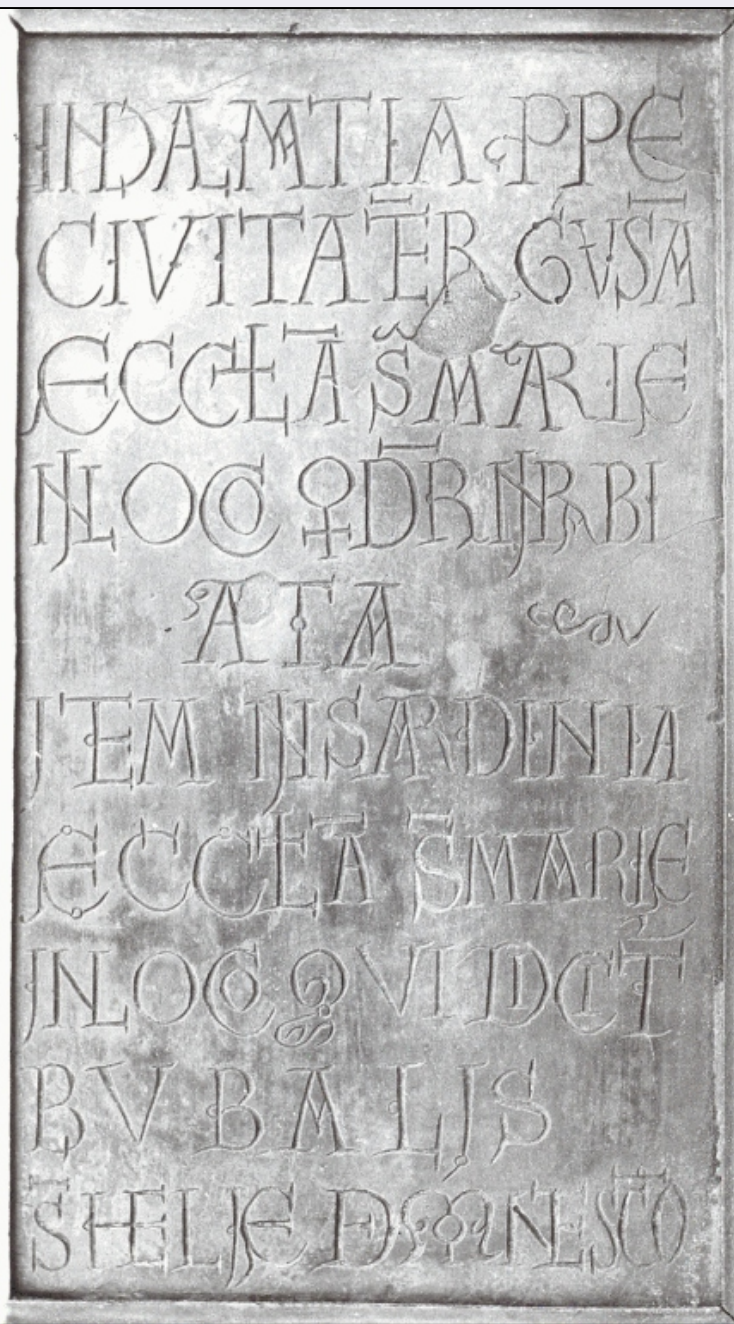 INDALMATIA · PPE
CIVITATĒ R GVSĀ
ECCLĀ S̄ MARIE
INLOCO Q D̄R INRBI
ATA
ITEM INSARDINIA
ECCLĀ S̄ MARIE
INLOCO QVI DICT̄
BVBALIS
S̄ HELIE D MONTE SC̄O